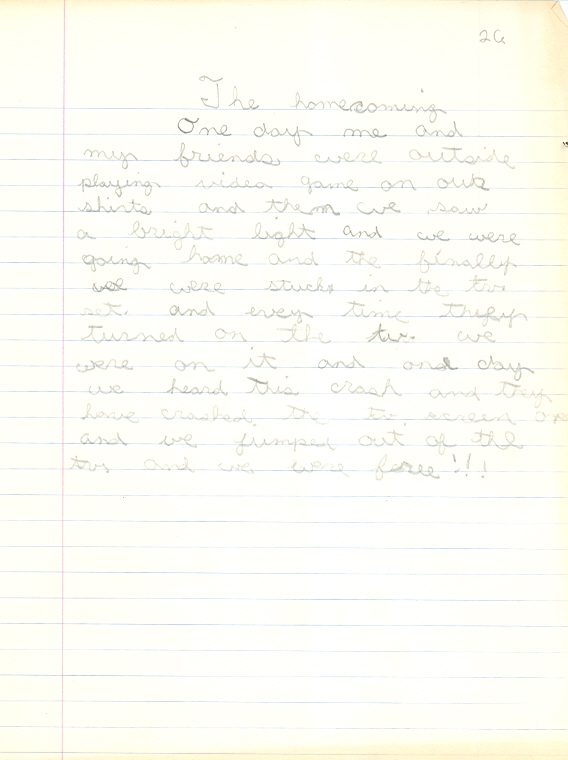 26
The homecoming
One day me and
my friends were outside
playing video game on our
shirts and them we saw
a bright light and we were
going home and the finally
we were stuck in the tv
set. and evey time they
turned on the tv. we
were on it and one day
we heard this crash and they
have crashed. the tv. screen
and we jumped out of the
tvs and we were free!!!